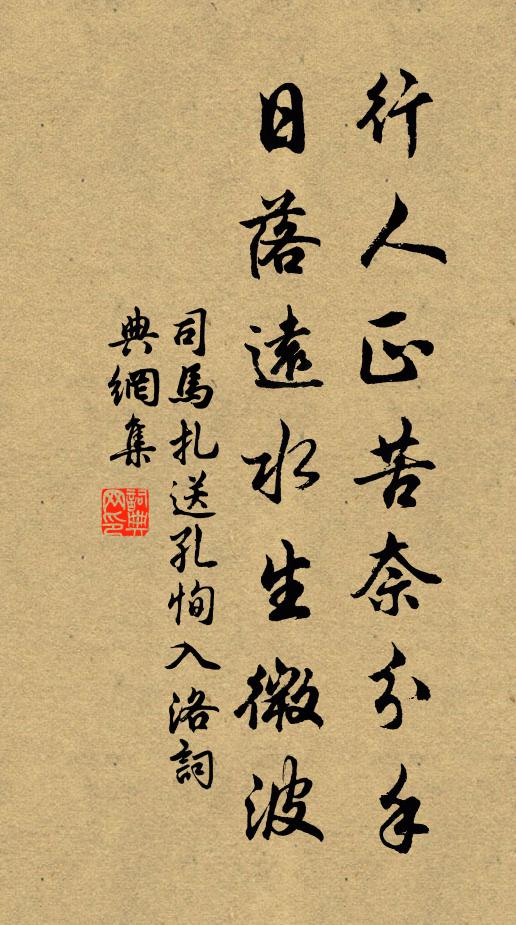 行人正苦奈分手
日落遠水生微波
司馬扎送孔恂入洛詞
典網集
詞典網印